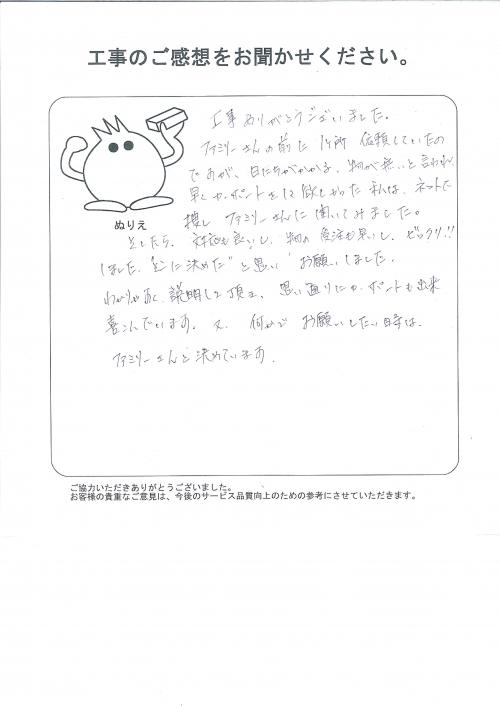 工事のご感想をお聞かせください。
工事ありがとうございました。
ファミリーさんの前に 1ヶ所 依頼していたの
ですが、日にちがかかる、物が無いと言われ、
早くカーポートをして欲しかった私は、ネットで
捜し ファミリーさんに聞いてみました。
ぬりえ
そしたら、対応も良いし、物の発注も早いし、ビックリ!!
しました。 に決めた"と思い お願いしました。
わかりやすく、説明して頂き、思い通りにカーポートも出来
喜こんでいます。又、何かで お願いしたい時は、
ファミリーさんと決めています。
ご協力いただきありがとうございました。
お客様の貴重なご意見は、今後のサービス品質向上のための参考にさせていただきます。